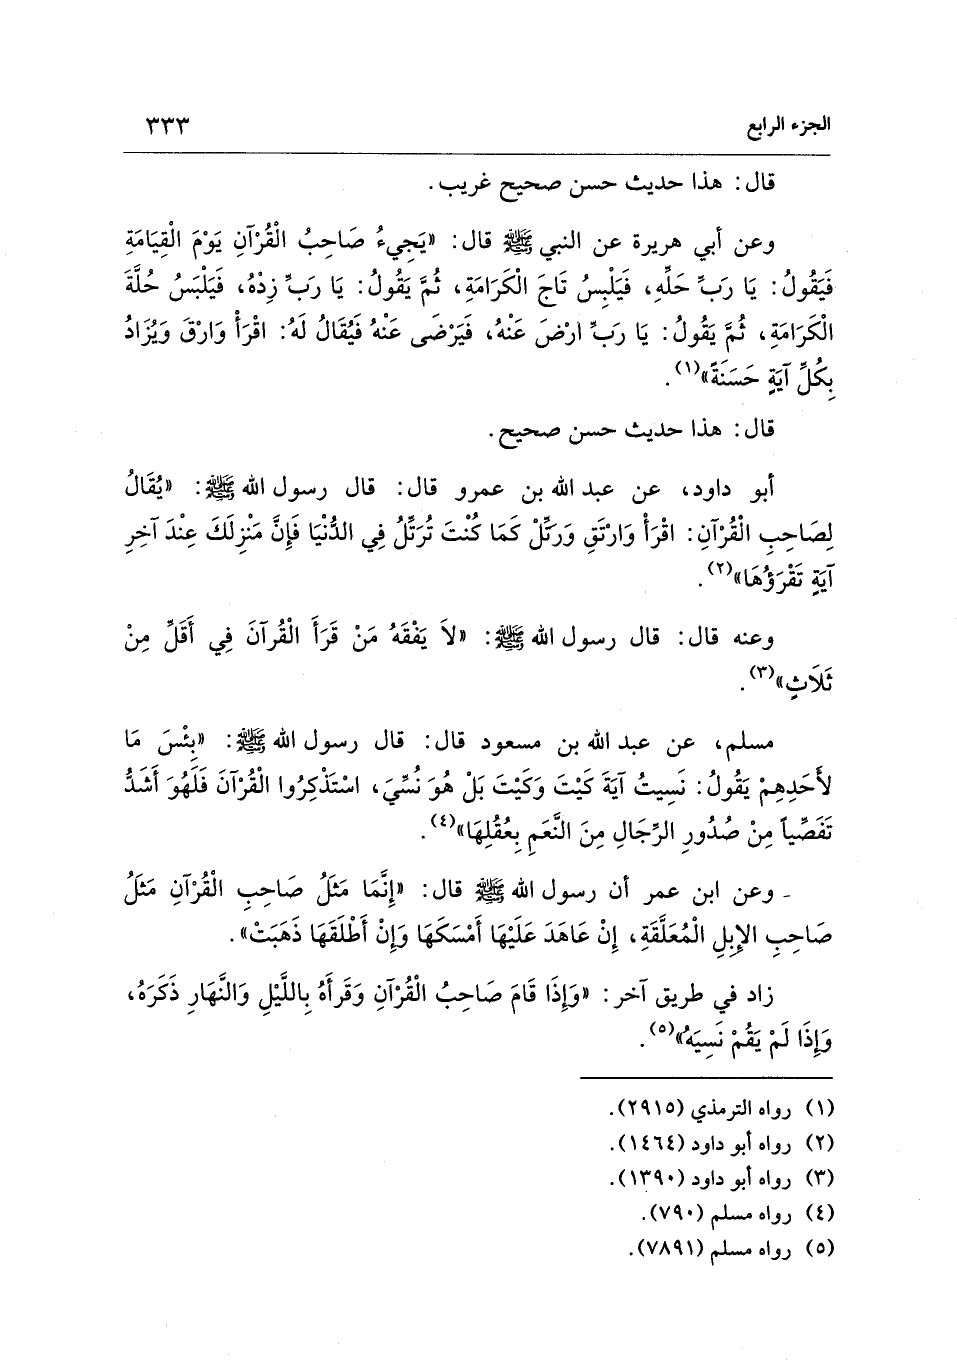 الجزء الرابع ٣٣٣
قال: هذا حديث حسن صحيح غريب.
وعن أبي هريرة عن النبي ﷺ قال: «يَجِيءُ صَاحِبُ الْقُرْآنِ يَوْمَ الْقِيَامَةِ
فَيَقُولُ: يَا رَبِّ حَلِّهِ، فَيَلْبِسُ تَاجَ الْكَرَامَةِ، ثُمَّ يَقُولُ: يَا رَبِّ زِدْهُ، فَيَلْبَسُ حُلَّةَ
الْكَرَامَةِ، ثُمَّ يَقُولُ: يَا رَبِّ ارْضَ عَنْهُ، فَيَرْضَى عَنْهُ فَيُقَالُ لَهُ: اقْرَأْ وَارْقَ وَيُزَادُ
بِكُلِّ آيَةٍ حَسَنَةً»(١).
قال: هذا حديث حسن صحيح.
أبو داود، عن عبد الله بن عمرو قال: قال رسول الله ﷺ: «يُقَالُ
لِصَاحِبِ الْقُرْآنِ: اقْرَأْ وَارْتَقِ وَرَتِّلْ كَمَا كُنْتَ تُرَتِّلُ فِي الدُّنْيَا فَإِنَّ مَنْزِلَكَ عِنْدَ آخِرِ
آيَةٍ تَقْرَؤُهَا»(٢).
وعنه قال: قال رسول الله ﷺ: «لاَ يَفْقَهُ مَنْ قَرَأَ الْقُرآنَ فِي أَقَلِّ مِنْ
ثَلاَثٍ»(٣).
مسلم، عن عبد الله بن مسعود قال: قال رسول الله ﷺ: «بِئْسَ مَا
لأَحَدِهِمْ يَقُولُ: نَسِيتُ آيَةَ كَيْتَ وَكَيْتَ بَلْ هُوَ نُسِّيَ، اسْتَذْكِرُوا الْقُرْآنَ فَلَهُوَ أَشَدُّ
تَفَصِّياً مِنْ صُدُورِ الرِّجَالِ مِنَ النَّعَمِ بِعُقُلِهَا»(٤).
ـ وعن ابن عمر أن رسول الله ﷺ قال: «إِنَّمَا مَثَلُ صَاحِبِ الْقُرْآنِ مَثَلُ
صَاحِبِ الإِبِلِ الْمُعَلَّقَةِ، إِنْ عَاهَدَ عَلَيْهَا أَمْسَكَهَا وَإِنْ أَطْلَقَهَا ذَهَبَتْ».
زاد في طريق آخر: «وَإِذَا قَامَ صَاحِبُ الْقُرْآنِ وَقَرأَهُ بِاللَّيْلِ وَالنَّهَارِ ذَكَرَهُ،
وَإِذَا لَمْ يَقُمْ نَسِيَهُ»(٥).
(١) رواه الترمذي (٢٩١٥).
(٢) رواه أبو داود (١٤٦٤).
(٣) رواه أبو داود (١٣٩٠).
(٤) رواه مسلم (٧٩٠).
(٥) رواه مسلم (٧٨٩١).